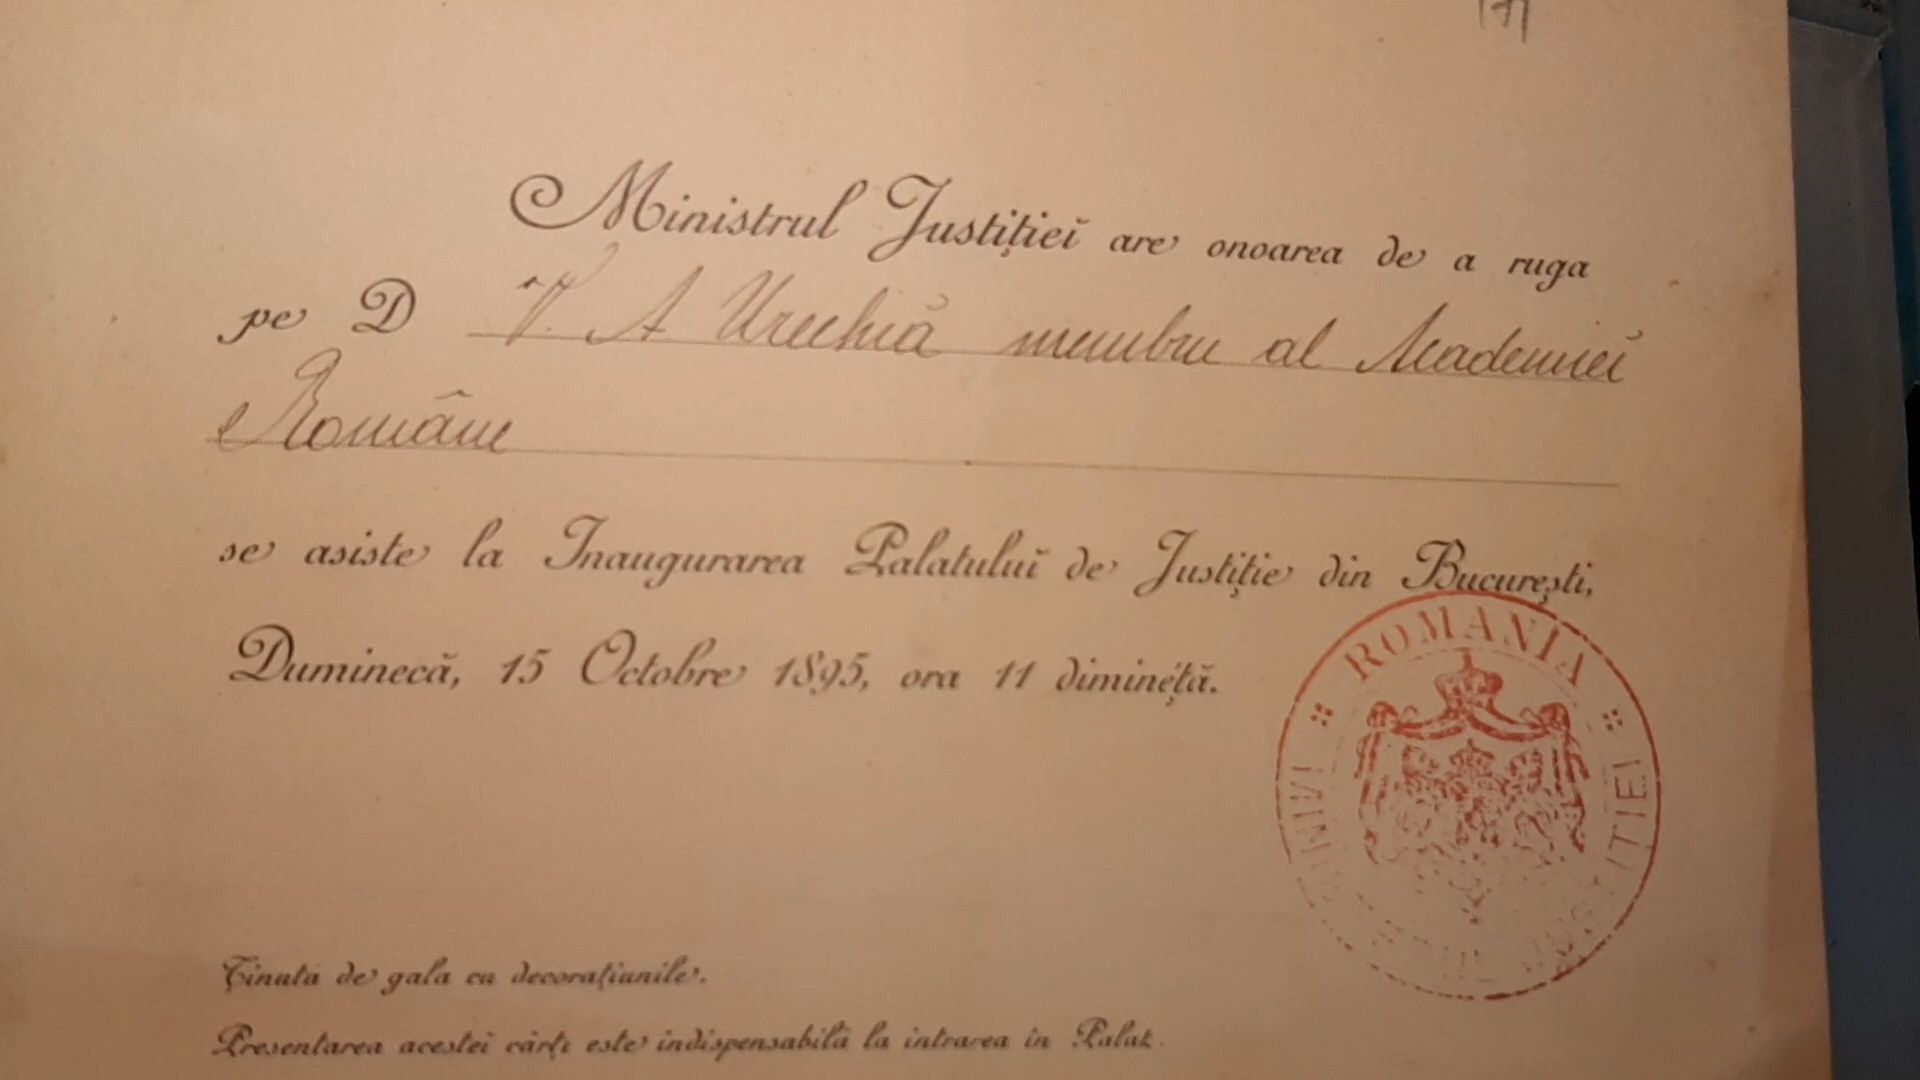 171
Ministrul Justiţieĭ are onoarea de a ruga
pe D V. A Urechiă membru al Academieĭ
Române
se asiste la Inaugurarea Palatuluĭ de Justiţie din Bucureşti,
Duminecă, 15 Octobre 1895, ora 11 dimineţă.
ROMANIA
MINISTERUL JUSTIŢIEI
Ţinuta de gala cu decoraţiunile.
Presentarea acestei cărţi este indispensabilă la intrarea în Palat.